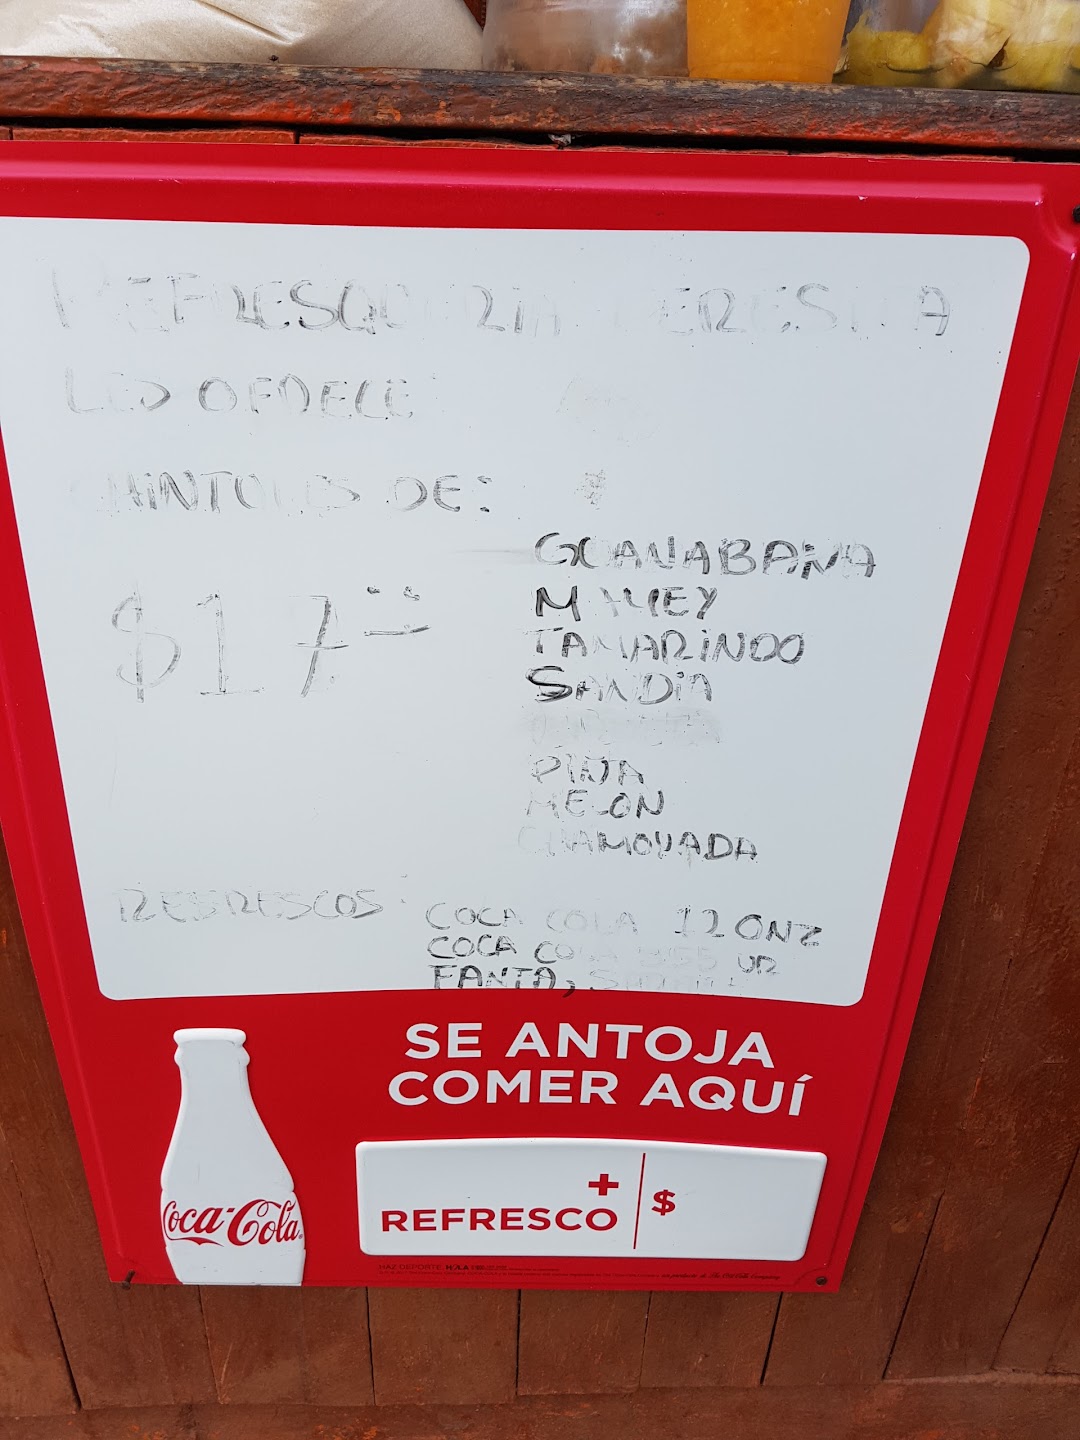 REFRESQUERIA TERESITA
LES OFRECE:
CHINTOLES DE:
$17.--
GUANABANA
MAMEY
TAMARINDO
SANDiA
PIÑA
MELON
CHAMOYADA
REFRESCOS:
COCA COLA 12 ONZ
COCA COLA 355 VD
FANTA,
SE ANTOJA
COMER AQUÍ
Coca-Cola
+
REFRESCO
$
HAZ DEPORTE